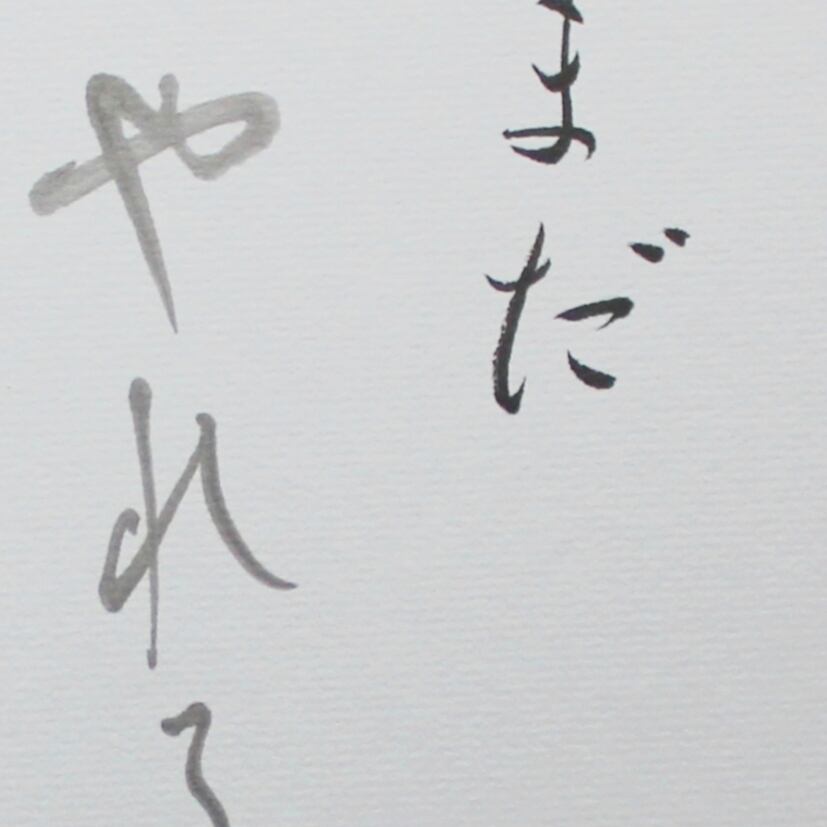 まだ
やれる